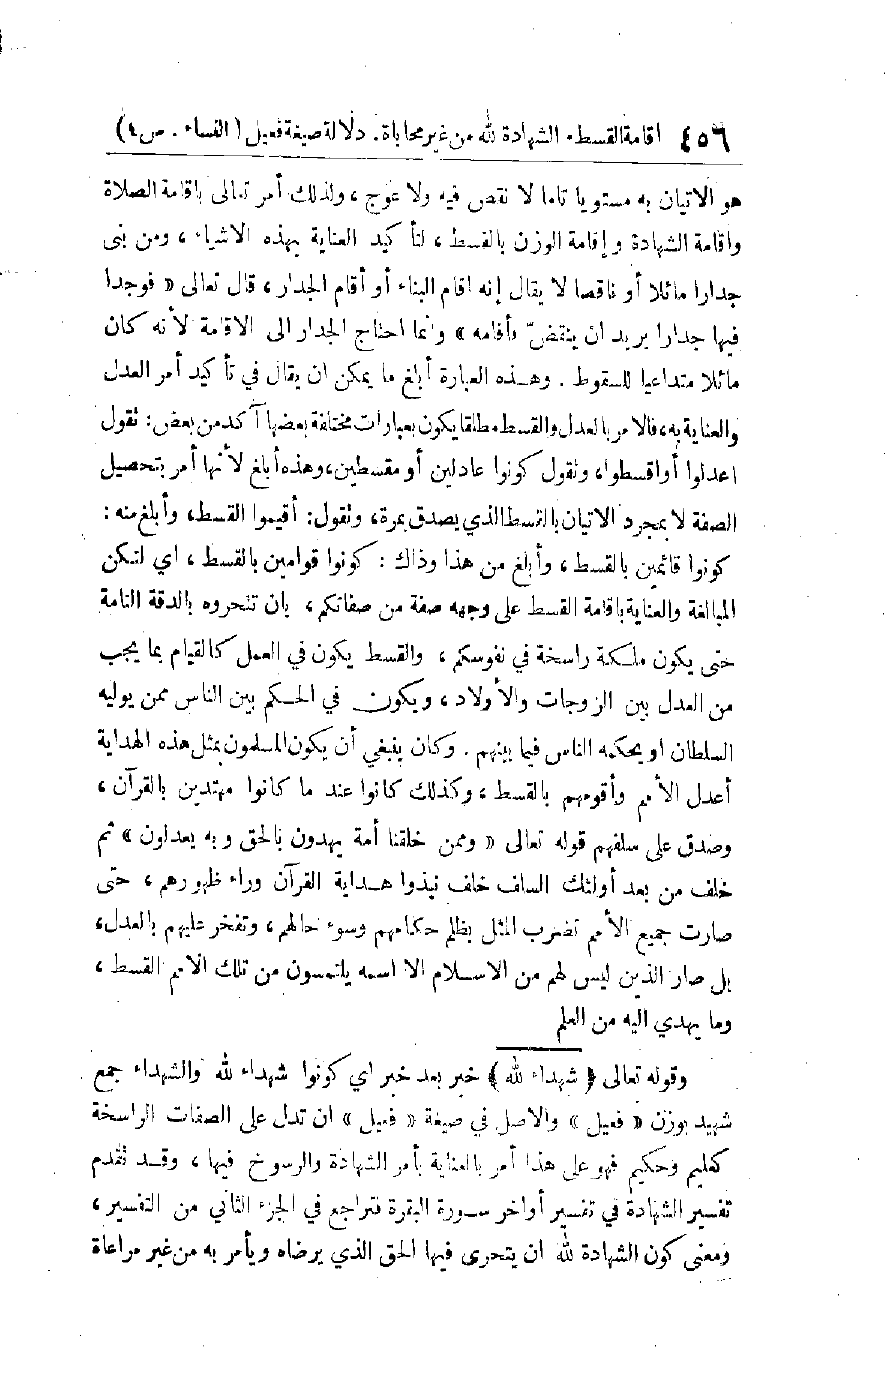 ٤٥٦ اقامة القسط . الشهادة لله من غير محاباة . دلالة صيغة فعيل (النساء . س ٤)
هو الاتيان به مستويا تاما لا نقص فيه ولا عوج ، ولذلك أمر تعالى باقامة الصلاة
واقامة الشهادة وإقامة الوزن بالقسط ، لتأكيد العناية بهذه الاشياء ، ومن بنى
جدارا مائلا أو ناقصا لا يقال إنه اقام البناء أو أقام الجدار ، قال تعالى « فوجدا
فيها جدارا يريد ان ينقضّ فأقامه » وانما احتاج الجدار الى الاقامة لأنه كان
مائلا متداعيا للسقوط . وهذه العبارة أبلغ ما يمكن ان يقال في تأكيد أمر العدل
والعناية به ، فالامر بالعدل والقسط مطلقا يكون بعبارات مختلفة بعضها آكد من بعض : تقول
اعدلوا أو اقسطوا ، وتقول كونوا عادلين أو مقسطين ، وهذه أبلغ لأنها أمر بتحصيل
الصفة لا بمجرد الاتيان بالقسط الذي يصدق بمرة ، وتقول : أقيموا القسط ، وأبلغ منه :
كونوا قائمين بالقسط ، وأبلغ من هذا وذاك : كونوا قوامين بالقسط ، اي لتكن
المبالغة والعناية باقامة القسط على وجهه صفة من صفاتكم ، بان تتحروه بالدقة التامة
حتى يكون ملكة راسخة في نفوسكم ، والقسط يكون في العمل كالقيام بما يجب
من العدل بين الزوجات والأولاد ، ويكون في الحكم بين الناس ممن يوليه
السلطان او يحكمه الناس فيما بينهم . وكان ينبغي أن يكون المسلمون بمثل هذه الهداية
أعدل الأمم وأقومهم بالقسط ، وكذلك كانوا عند ما كانوا مهتدين بالقرآن ،
وصدق على سلفهم قوله تعالى « وممن خلقنا أمة يهدون بالحق وبه يعدلون » ثم
خلف من بعد أولئك السلف خلف نبذوا هداية القرآن وراء ظهورهم ، حتى
صارت جميع الأمم تضرب المثل بظلم حكامهم وسوء حالهم ، وتفخر عليهم بالعدل ،
بل صار الذين ليس لهم من الاسلام الا اسمه يلتمسون من تلك الامم القسط ،
وما يهدي اليه من العلم
وقوله تعالى ﴿ شهداء لله ﴾ خبر بعد خبر اي كونوا شهداء لله والشهداء جمع
شهيد بوزن « فعيل » والاصل في صيغة « فعيل » ان تدل على الصفات الراسخة
كعليم وحكيم فهو على هذا أمر بالعناية بأمر الشهادة والرسوخ فيها ، وقد تقدم
تفسير الشهادة في تفسير أواخر سورة البقرة فتراجع في الجزء الثاني من التفسير ،
ومعنى كون الشهادة لله ان يتحرى فيها الحق الذي يرضاه ويأمر به من غير مراعاة